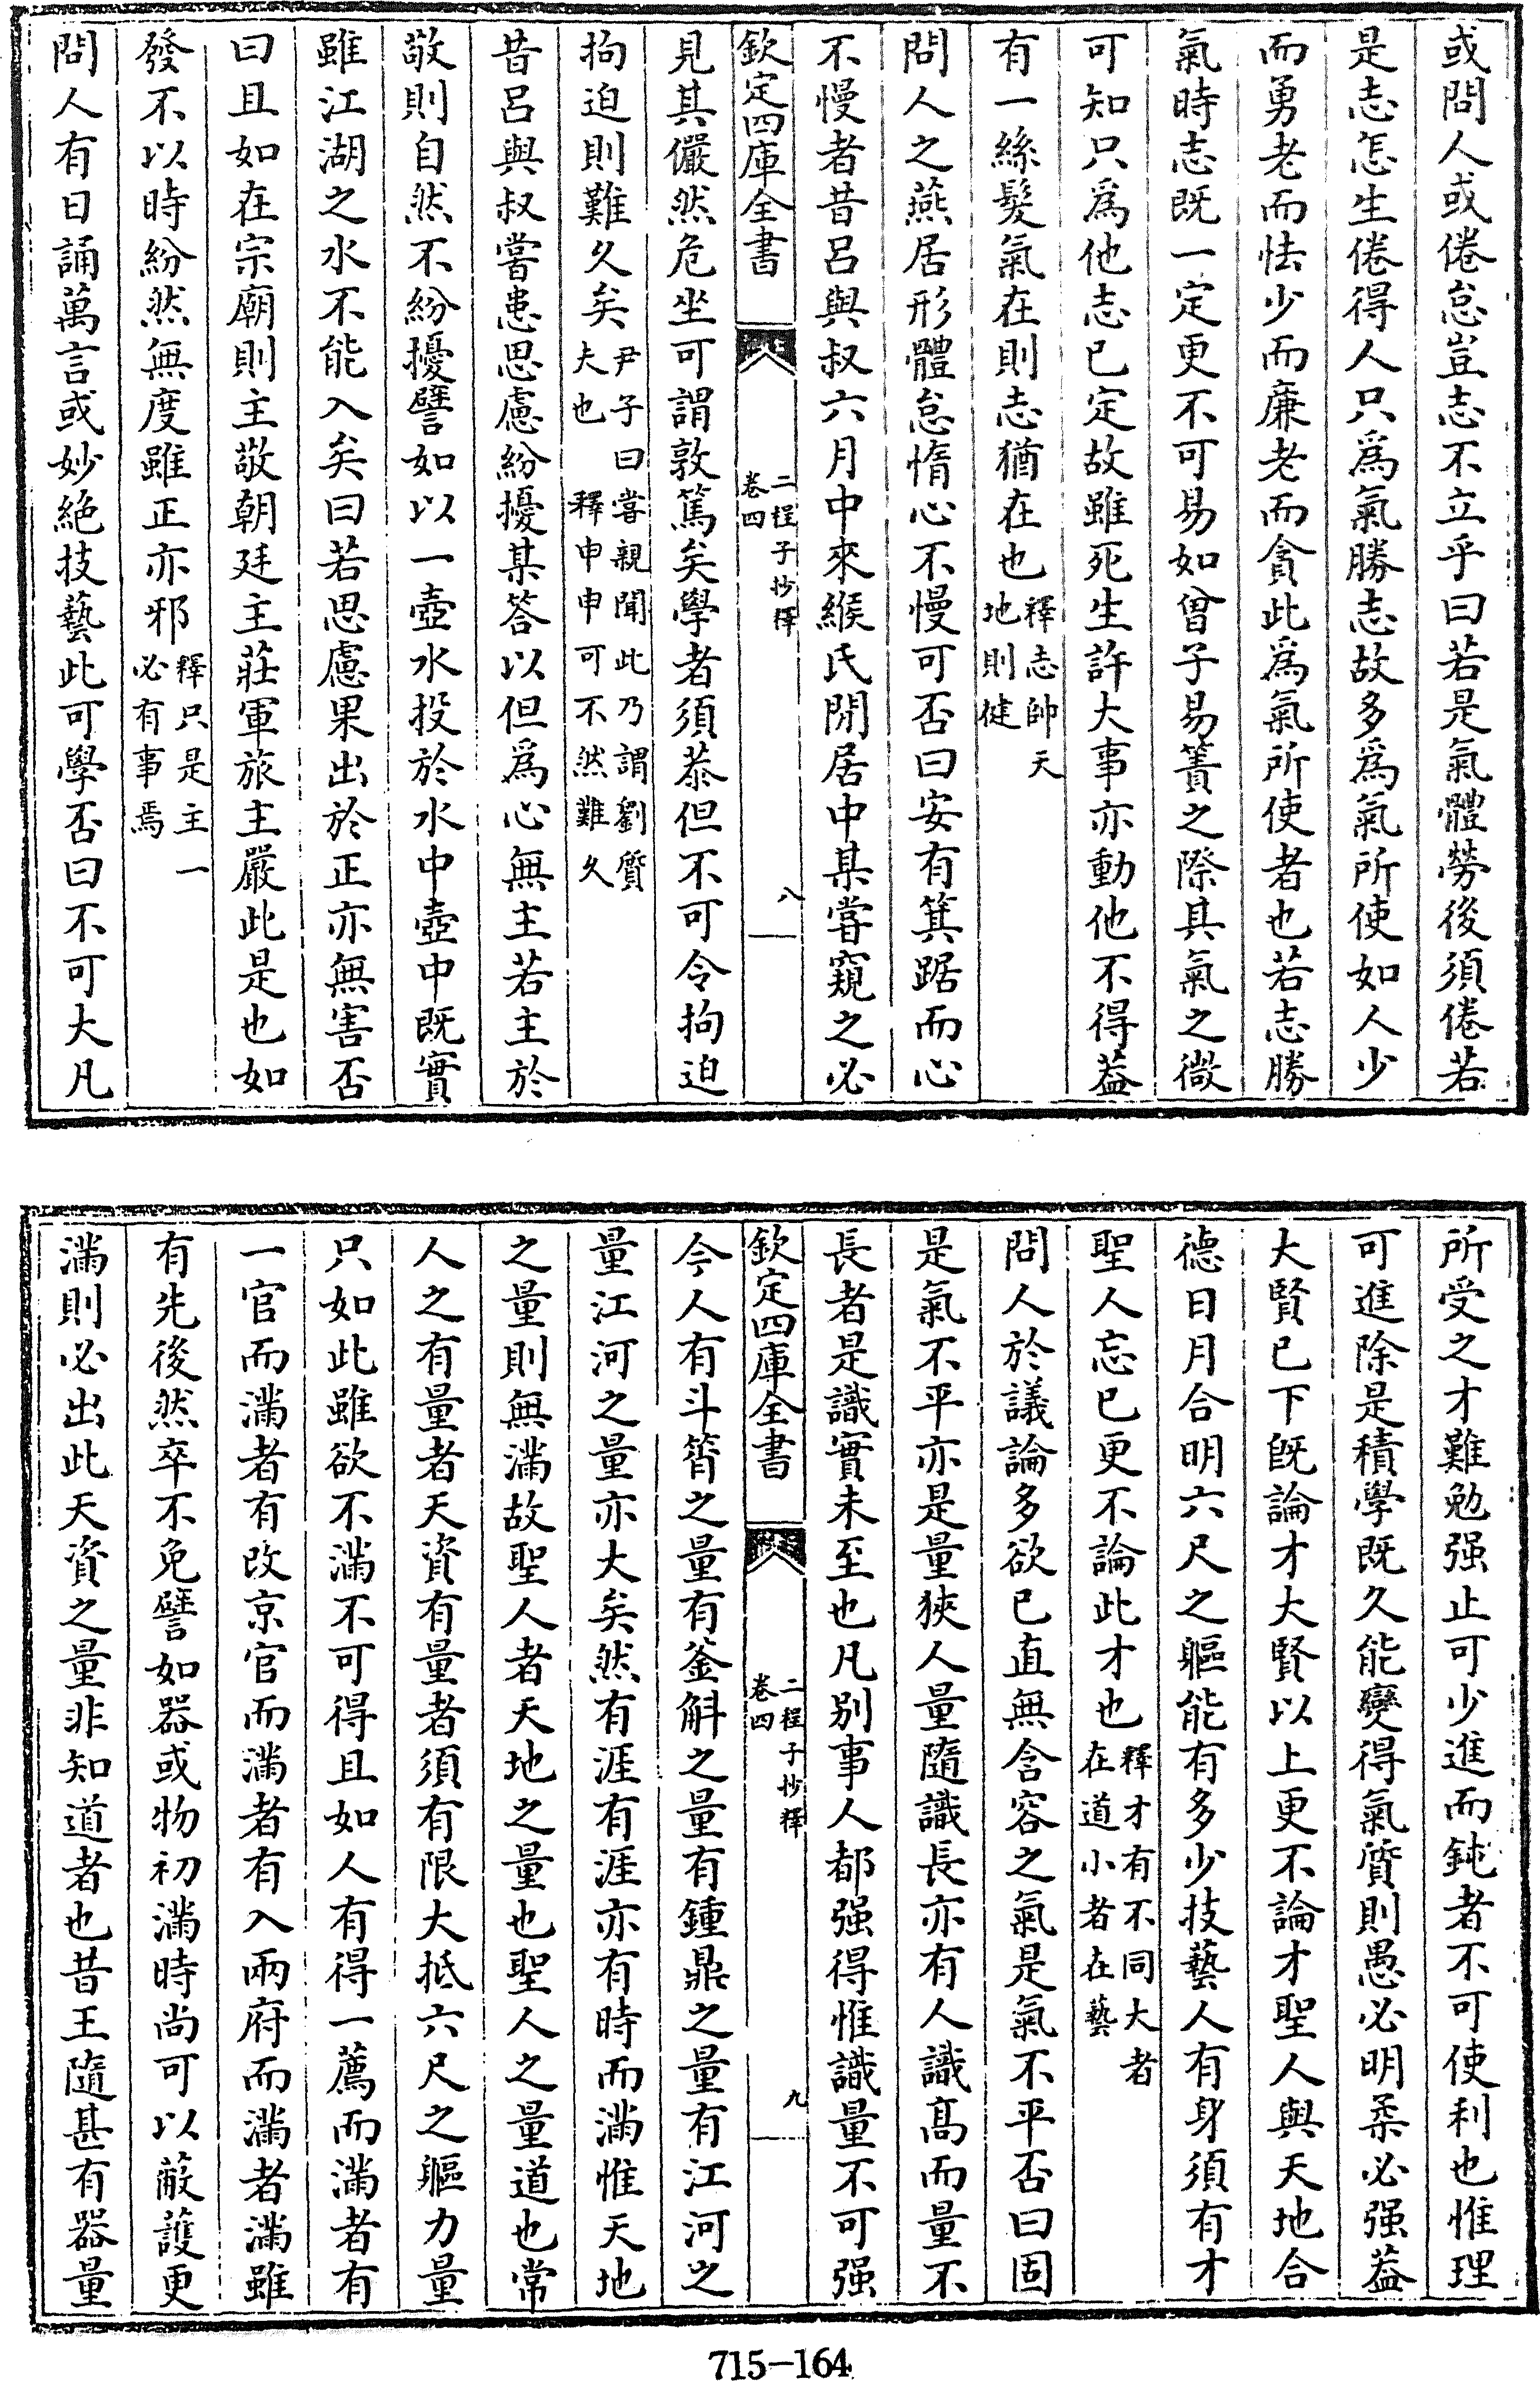 或問人或倦怠豈志不立乎曰若是氣體勞後須倦若
是志怎生倦得人只爲氣勝志故多爲氣所使如人少
而勇老而怯少而廉老而貪此爲氣所使者也若志勝
氣時志既一定更不可易如曾子易簀之際其氣之微
可知只爲他志已定故雖死生許大事亦動他不得蓋
有一絲髮氣在則志猶在也釋志帥天
地則健
問人之燕居形體怠惰心不慢可否曰安有箕踞而心
不慢者昔呂與叔六月中來緱氏閒居中某嘗窺之必
欽定四庫全書
二程子抄釋
卷四
八
見其儼然危坐可謂敦篤矣學者須恭但不可令拘迫
拘迫則難久矣尹子曰嘗親聞此乃謂劉質
夫也 釋申申可不然難久
昔呂與叔嘗患思慮紛擾某答以但爲心無主若主於
敬則自然不紛擾譬如以一壺水投於水中壺中既實
雖江湖之水不能入矣曰若思慮果出於正亦無害否
曰且如在宗廟則主敬朝廷主莊軍旅主嚴此是也如
發不以時紛然無度雖正亦邪釋只是主一
必有事焉
問人有日誦萬言或妙絕技藝此可學否曰不可大凡
所受之才難勉强止可少進而鈍者不可使利也惟理
可進除是積學既久能變得氣質則愚必明柔必强蓋
大賢已下既論才大賢以上更不論才聖人與天地合
德日月合明六尺之軀能有多少技藝人有身須有才
聖人忘已更不論此才也釋才有不同大者
在道小者在藝
問人於議論多欲已直無含容之氣是氣不平否曰固
是氣不平亦是量狹人量隨識長亦有人識髙而量不
長者是識實未至也凡别事人都强得惟識量不可强
欽定四庫全書
二程子抄釋
卷四
九
今人有斗筲之量有釜斛之量有鍾鼎之量有江河之
量江河之量亦大矣然有涯有涯亦有時而滿惟天地
之量則無滿故聖人者天地之量也聖人之量道也常
人之有量者天資有量者須有限大抵六尺之軀力量
只如此雖欲不滿不可得且如人有得一薦而滿者有
一官而滿者有改京官而滿者有入兩府而滿者滿雖
有先後然卒不免譬如器或物初滿時尚可以蔽護更
滿則必出此天資之量非知道者也昔王隨甚有器量
715-164